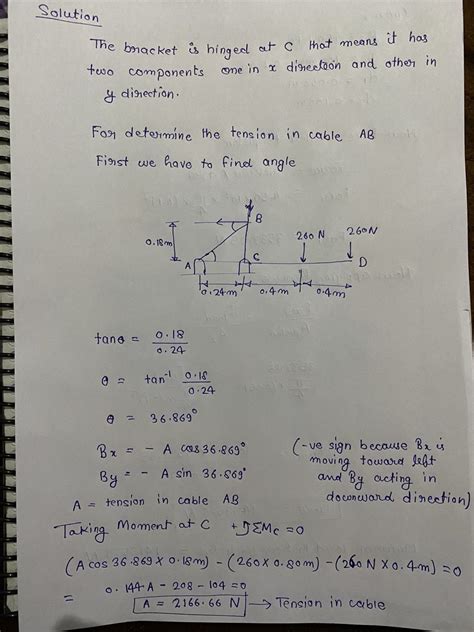 Solution
The bracket is hinged at C that means it has
two components one in x direction and other in
y direction.
For determine the tension in cable AB
First we have to find angle
B
0.18m
260 N
260N
A
C
D
0.24m
0.4m
0.4m
tanθ = 0.18/0.24
θ = tan⁻¹ 0.18/0.24
θ = 36.869°
Bx = - A cos 36.869°
(-ve sign because Bx is
moving toward left
By = - A sin 36.869°
and By acting in
downward direction)
A = tension in cable AB
Taking Moment at C +↻ ΣMc = 0
(A cos 36.869 × 0.18m) - (260 × 0.80m) - (260 N × 0.4m) = 0
= 0.144A - 208 - 104 = 0
A = 2166.66 N → Tension in cable